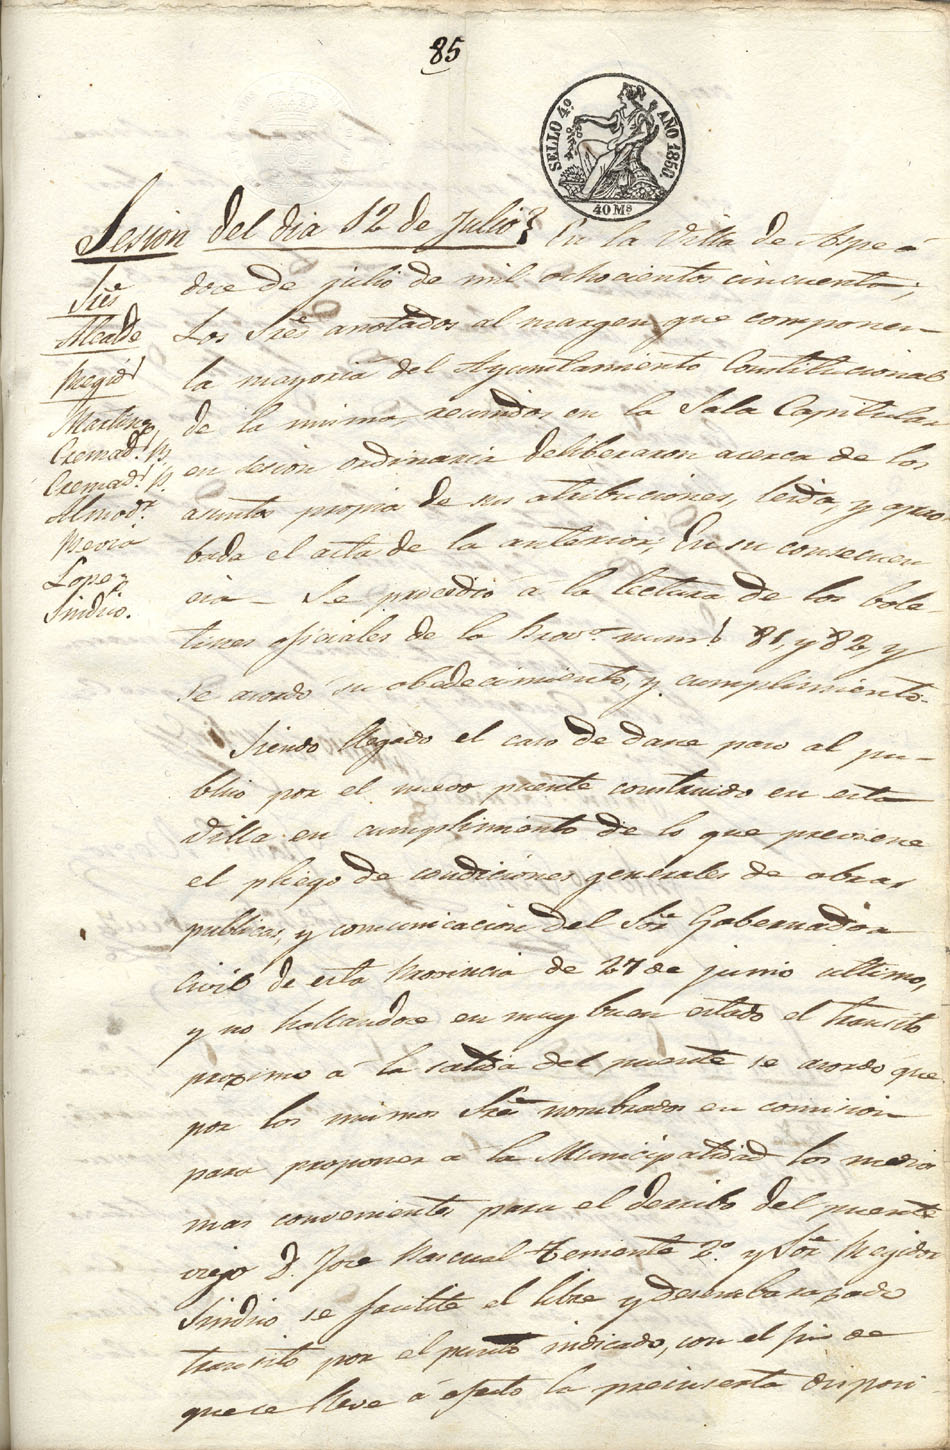 85
SELLO 4.º AÑO 1850.
40 Ms
Sesion del dia 12 de Julio } En la Villa de Aspe á
doce de julio de mil ochocientos cincuenta;
Los Sres anotados al margen que componen
la mayoria del Ayuntamiento Constitucional
de la misma, reunidos en la Sala Capitular
en sesion ordinaria deliberaron acerca de los
asuntos propios de sus atribuciones, leida, y apro
bada el acta de la anterior; En su consecuen
cia – Se procedió a la lectura de los bole-
tines oficiales de la Prov.ª num.s 81, y 82, y
se acordó su obedecimiento, y cumplimiento.
Sres
Alcalde
Regid.s
Martinz
Cremad.s
Cremad.s
Almod.r
Lopez
Sindico.
Siendo llegado el caso de darse paso al pu-
blico por el nuevo puente construido en esta
Villa en cumplimiento de lo que previene
el pliego de condiciones generales de obras
publicas, y comunicacion del Sor Gobernador
Civil de esta Provincia de 27 de junio ultimo,
y no hallandose en muy buen estado el transito
proximo á la salida del puente se acordó que
por los mismos Sres nombrados en comision
para proponer a la Municipalidad los medios
mas convenientes para el derribo del puente
viejo D. Jose Pascual Teniente 2.º y Sor Regidor
Sindico se facilite el libre y desembarazado
transito por el punto indicado, con el fin de
que se lleve á efecto la preinserta disposi-